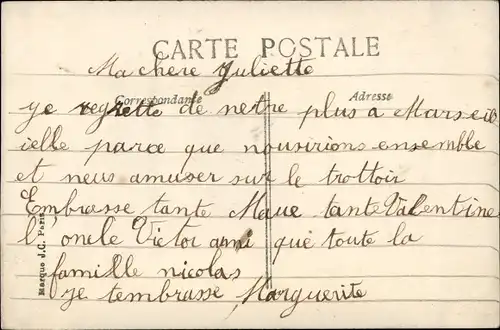 CARTE POSTALE
Ma chere Juliette
Correspondance
Adresse
je regrette de netre plus a Marseil
ielle parce que nousirions ensemble
et nous amuser sur le trottoir
Embrasse tante Maue tante Valentine
l oncle Victor ami que toute la
famille nicolas
je tembrasse Marguerite
Marque J.C. Paris